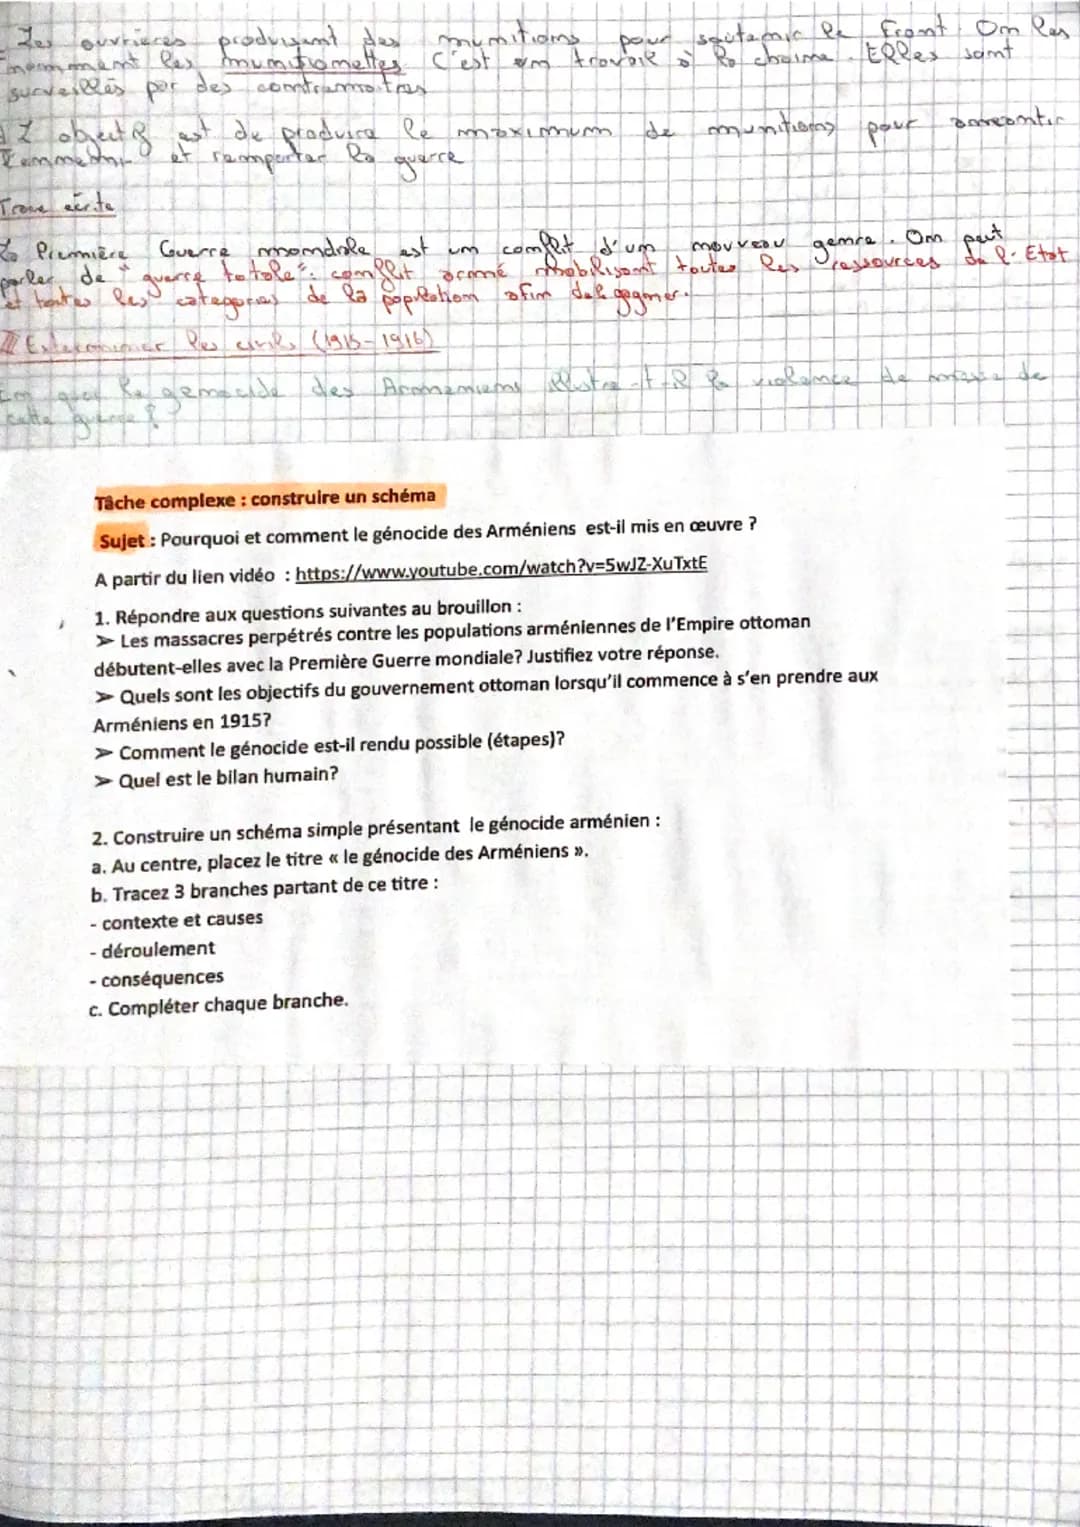 Les ouvrières produisent des munitions pour soutenir le front. On les
nomment les munitionnettes. C'est un travail à la chaine. Elles sont
surveillés par des contremaitres
L'objectif est de produire le maximum de munitions pour
et remporter la guerre
Trace écrite
La Première Guerre mondiale est un conflit d'un nouveau genre. On peut
parler de "guerre totale": conflit armé mobilisant toutes les ressources de l'Etat
et toutes les categories de la population afin de la gagner.
III Exterminer les civils (1915-1916)
En quoi le genocide des Armeniens illustre-t-il la violence de masse de
cette guerre ?
Tâche complexe : construire un schéma
Sujet : Pourquoi et comment le génocide des Arméniens est-il mis en œuvre ?
A partir du lien vidéo : https://www.youtube.com/watch?v=5wJZ-XuTxtE
1. Répondre aux questions suivantes au brouillon :
➤ Les massacres perpétrés contre les populations arméniennes de l'Empire ottoman
débutent-elles avec la Première Guerre mondiale? Justifiez votre réponse.
➤ Quels sont les objectifs du gouvernement ottoman lorsqu'il commence à s'en prendre aux
Arméniens en 1915?
➤ Comment le génocide est-il rendu possible (étapes)?
➤ Quel est le bilan humain?
2. Construire un schéma simple présentant le génocide arménien :
a. Au centre, placez le titre « le génocide des Arméniens ».
b. Tracez 3 branches partant de ce titre :
- contexte et causes
- déroulement
- conséquences
c. Compléter chaque branche.